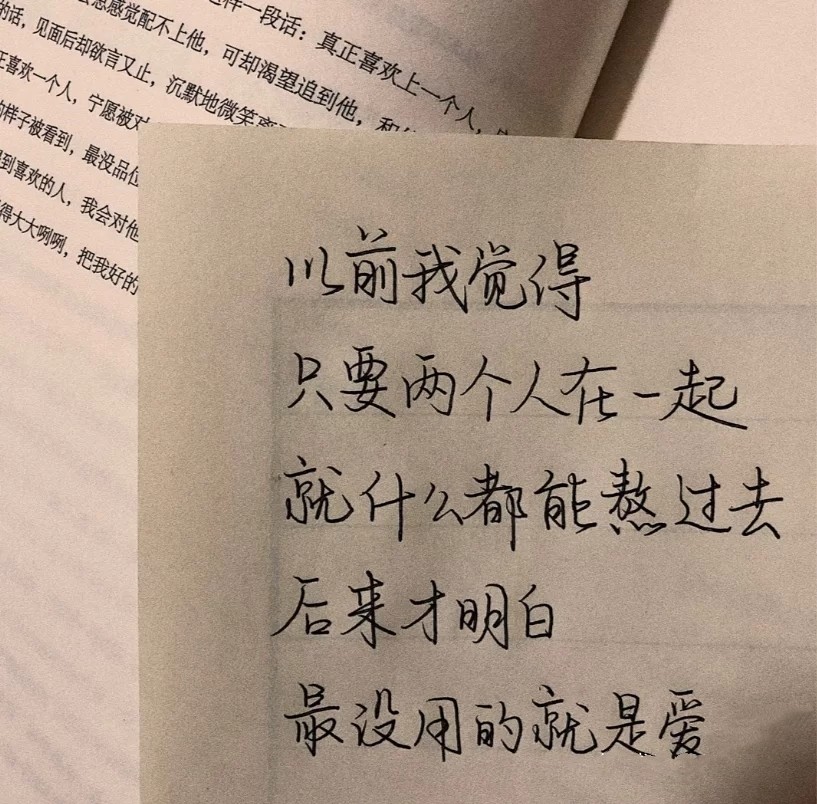 这样一段话：真正喜欢上一个人，
感觉配不上他，可却渴望追到他，和
的话，见面后却欲言又止，沉默地微笑
正喜欢一个人，宁愿被
的样子被看到，最没品位
到喜欢的人，我会对他
得大大咧咧，把我好的
以前我觉得
只要两个人在一起
就什么都能熬过去
后来才明白
最没用的就是爱